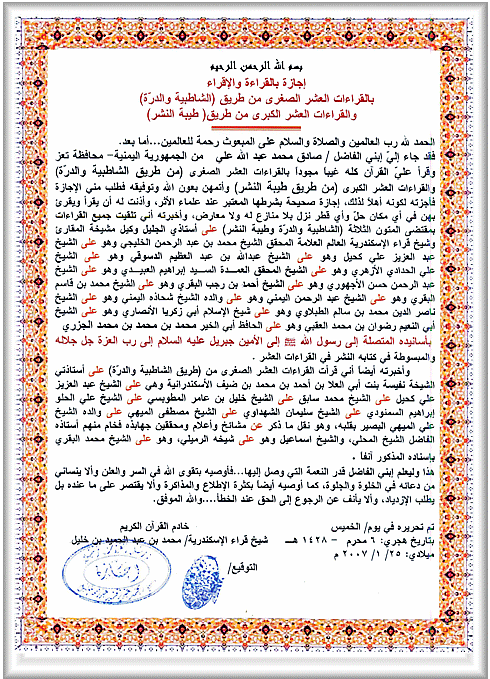 بسم الله الرحمن الرحيم
إجازة بالقراءة والإقراء
بالقراءات العشر الصغرى من طريق (الشاطبية والدرّة)
والقراءات العشر الكبرى من طريق( طيبة النشر)
الحمد لله رب العالمين والصلاة والسلام على المبعوث رحمة للعالمين...أما بعد.
فقد جاء إليّ إبني الفاضل / صادق محمد عبد الله علي من الجمهورية اليمنية- محافظة تعز
وقرأ عليّ القرآن كله غيباً مجوداً بالقراءات العشر الصغرى (من طريق الشاطبية والدرة)
والقراءات العشر الكبرى (من طريق طيبة النشر) وأتمهن بعون الله وتوفيقه فطلب مني الإجازة
فأجزته لكونه أهلاً لذلك، إجازة صحيحة بشرطها المعتبر عند علماء الأثر، وأذنت له أن يقرأ ويقرئ
بهن في أي مكان حلّ وأي قطر نزل بلا منازع له ولا معارض، وأخبرته أني تلقيت جميع القراءات
بمقتضى المتون الثلاثة (الشاطبية والدرة وطيبة النشر) على أستاذي الجليل وكيل مشيخة المقارئ
وشيخ قراء الإسكندرية العالم العلامة المحقق الشيخ محمد بن عبد الرحمن الخليجي وهو على الشيخ
عبد العزيز علي كحيل وهو على الشيخ عبدالله بن عبد العظيم الدسوقي وهو على الشيخ
علي الحدادي الأزهري وهو على الشيخ المحقق العمدة السيد إبراهيم العبيدي وهو على الشيخ
عبد الرحمن حسن الأجهوري وهو على الشيخ أحمد بن رجب البقري وهو على الشيخ محمد بن قاسم
البقري وهو على الشيخ عبد الرحمن اليمني وهو على والده الشيخ شحاذه اليمني وهو على الشيخ
ناصر الدين محمد بن سالم الطبلاوي وهو على شيخ الإسلام أبي زكريا الأنصاري وهو على الشيخ
أبي النعيم رضوان بن محمد العقبي وهو على الحافظ أبي الخير محمد بن محمد بن محمد الجزري
بأسانيده المتصلة إلى رسول الله ﷺ إلى الأمين جبريل عليه السلام إلى رب العزة جل جلاله
والمبسوطة في كتابه النشر في القراءات العشر .
وأخبرته أيضاً أني قرأت القراءات العشر الصغرى من (طريق الشاطبية والدرّة) على أستاذتي
الشيخة نفيسة بنت أبي العلا بن أحمد بن محمد بن ضيف الأسكندرانية وهي على الشيخ عبد العزيز
علي كحيل على الشيخ محمد سابق على الشيخ خليل بن عامر المطوبسي على الشيخ علي الحلو
إبراهيم السمنودي على الشيخ سليمان الشهداوي على الشيخ مصطفى الميهي على والده الشيخ
علي الميهي البصير بقلبه، وهو نقل ما ذكر عن مشائخ وأعلام ومحققين جهابذه فخام منهم أستاذه
الفاضل الشيخ المحلي، والشيخ اسماعيل وهو على شيخه الرميلي، وهو على الشيخ محمد البقري
بإسناده المذكور آنفا .
هذا وليعلم إبني الفاضل قدر النعمة التي وصل إليها...فأوصيه بتقوى الله في السر والعلن وألا ينساني
من دعائه في الخلوة والجلوة، كما أوصيه أيضاً بكثرة الإطلاع والمذاكرة وألا يقتصر على ما عنده بل
يطلب الازدياد، وألا يأنف عن الرجوع إلى الحق عند الخطأ....والله الموفق.
تم تحريره في يوم/ الخميس
بتاريخ هجري: ٦ محرم - ١٤٢٨ هـ
ميلادي: ٢٥ / ١ / ٢٠٠٧ م
خادم القرآن الكريم
شيخ قراء الإسكندرية/ محمد بن عبد الحميد بن خليل
التوقيع/